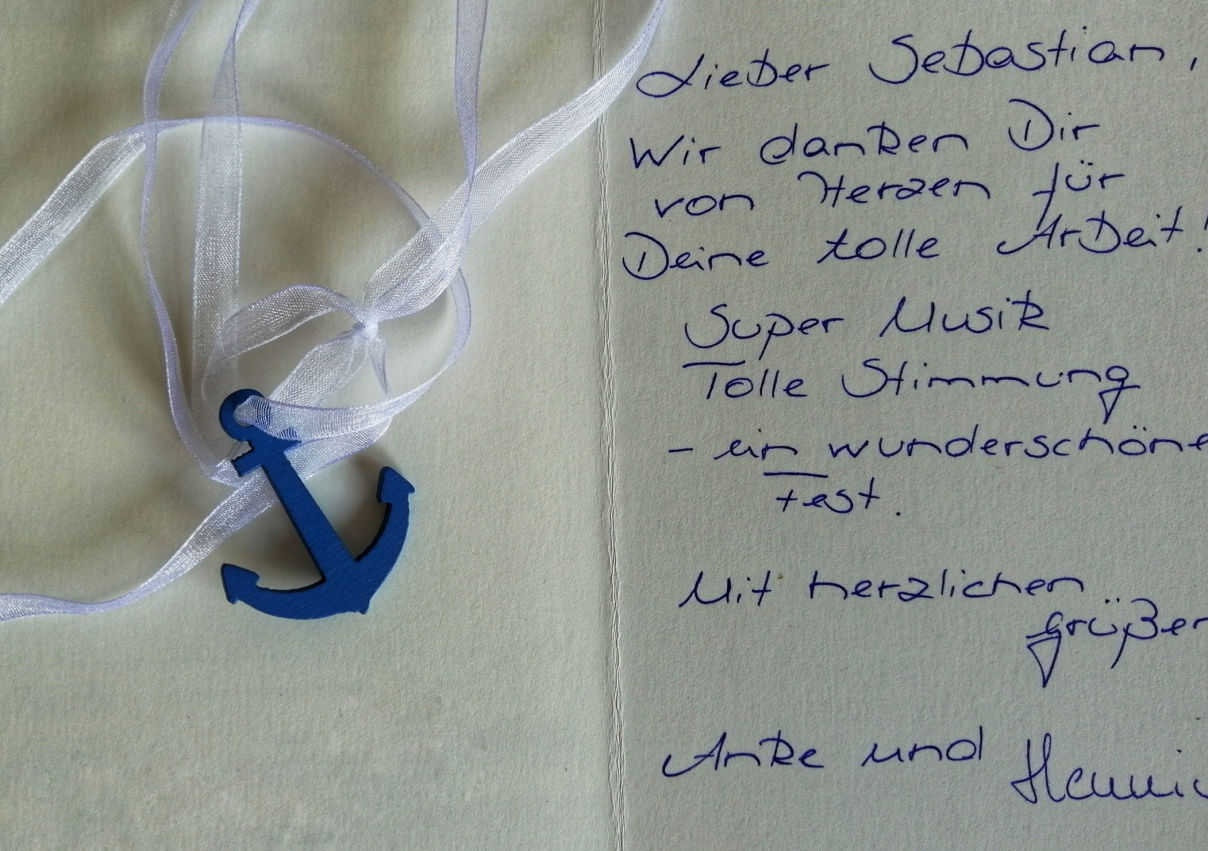 Lieber Sebastian,
Wir danken Dir
von Herzen für
Deine tolle Arbeit!
Super Musik
Tolle Stimmung
- ein wunderschöne
Fest.
Mit herzlichen
grüßen
Anke und